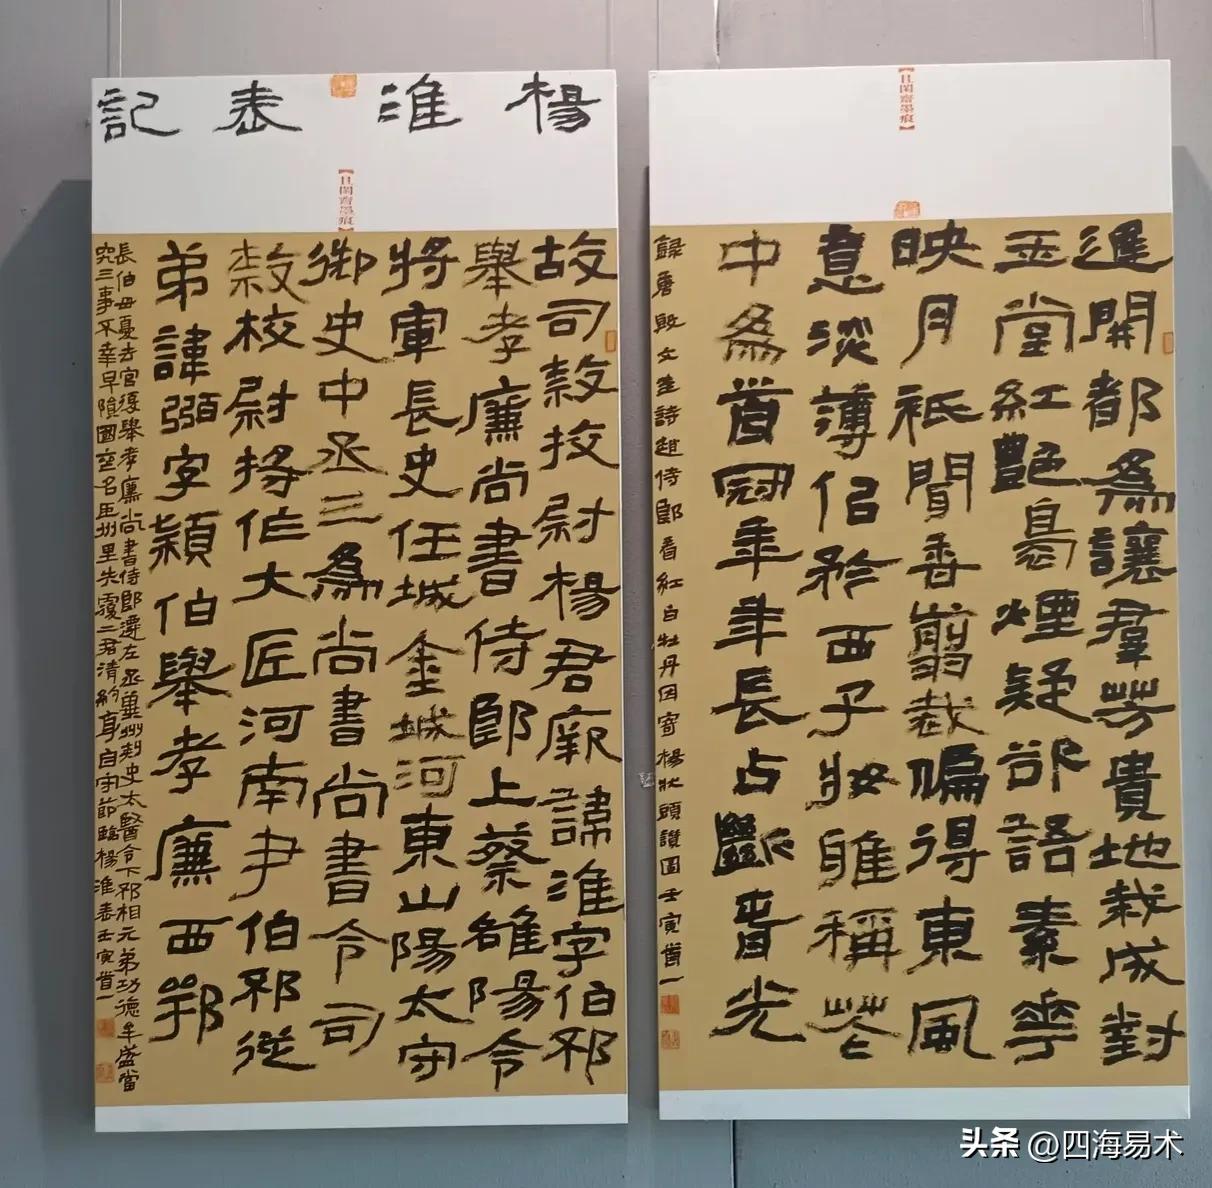 楊淮表記
【且閑齋墨痕】
故司隸校尉楊君厥諱淮字伯邳
舉孝廉尚書侍郎上蔡雒陽令
將軍長史任城金城河東山陽太守
御史中丞三為尚書尚書令司
隸校尉將作大匠河南尹伯邳從
弟諱弼字穎伯舉孝廉西鄂
長伯母憂去官復舉孝廉尚書侍郎遷左丞冀州刺史太醫令下邳相元弟功德牟盛當
究三事不幸早隕國喪名臣州里失覆二君清約身自守節臨楊淮表壬寅首一
【且閑齋墨痕】
遲開都為讓羣芳貴地栽成對
玉堂紅艷裊煙疑欲語素華
映月祇聞香翦裁偏得東風
意淡薄侶矜西子妝雖稱花
中為首冠年年長占斷春光
錄唐殷文圭詩趙侍郎看紅白牡丹因寄楊狀頭讚圖壬寅首一
头条 @四海易术